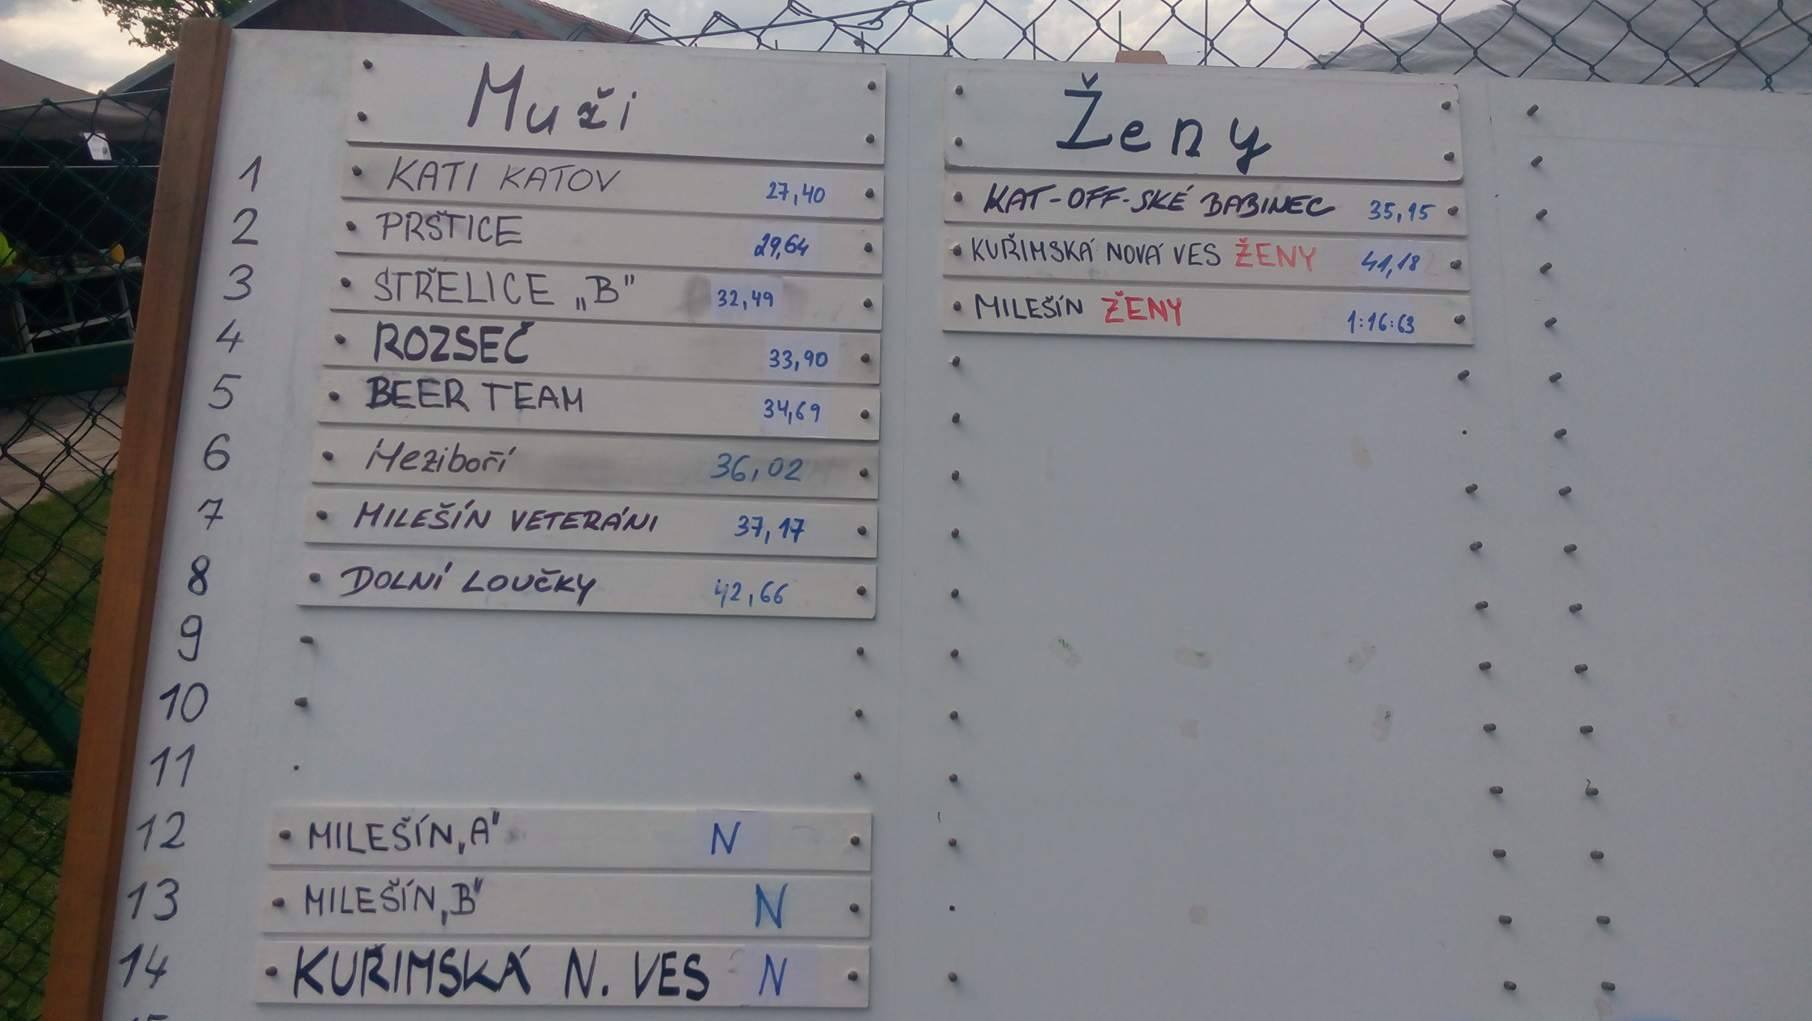 Muži
1 KATI KATOV 27,40
2 PRŠTICE 29,64
3 STŘELICE „B" 32,49
4 ROZSEČ 33,90
5 BEER TEAM 34,69
6 Meziboří 36,02
7 MILEŠÍN VETERÁNI 37,17
8 DOLNÍ LOUČKY 42,66
9
10
11
12 MILEŠÍN „A" N
13 MILEŠÍN „B" N
14 KUŘIMSKÁ N. VES N
Ženy
KAT-OFF-SKÉ BABINEC 35,15
KUŘIMSKÁ NOVÁ VES ŽENY 41,18
MILEŠÍN ŽENY 1:16:63